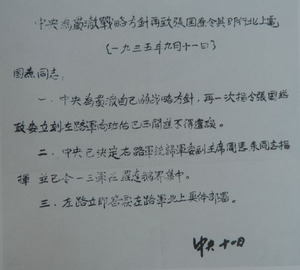 中央為貫徹戰略方針再致張國燾令其即行北上電
(一九三五年九月十一日)
國燾同志:
一、中央為貫徹自己的战略方針,再一次指令張國燾
政委立刻左路軍向班佑巴西開進不得違誤。
二、中央已决定右路軍統歸軍委副主席周恩來同志指
揮 並已令一三軍在羅達拐界集中。
三、左路立即答复左路軍北上具体部署。
中央 十一日